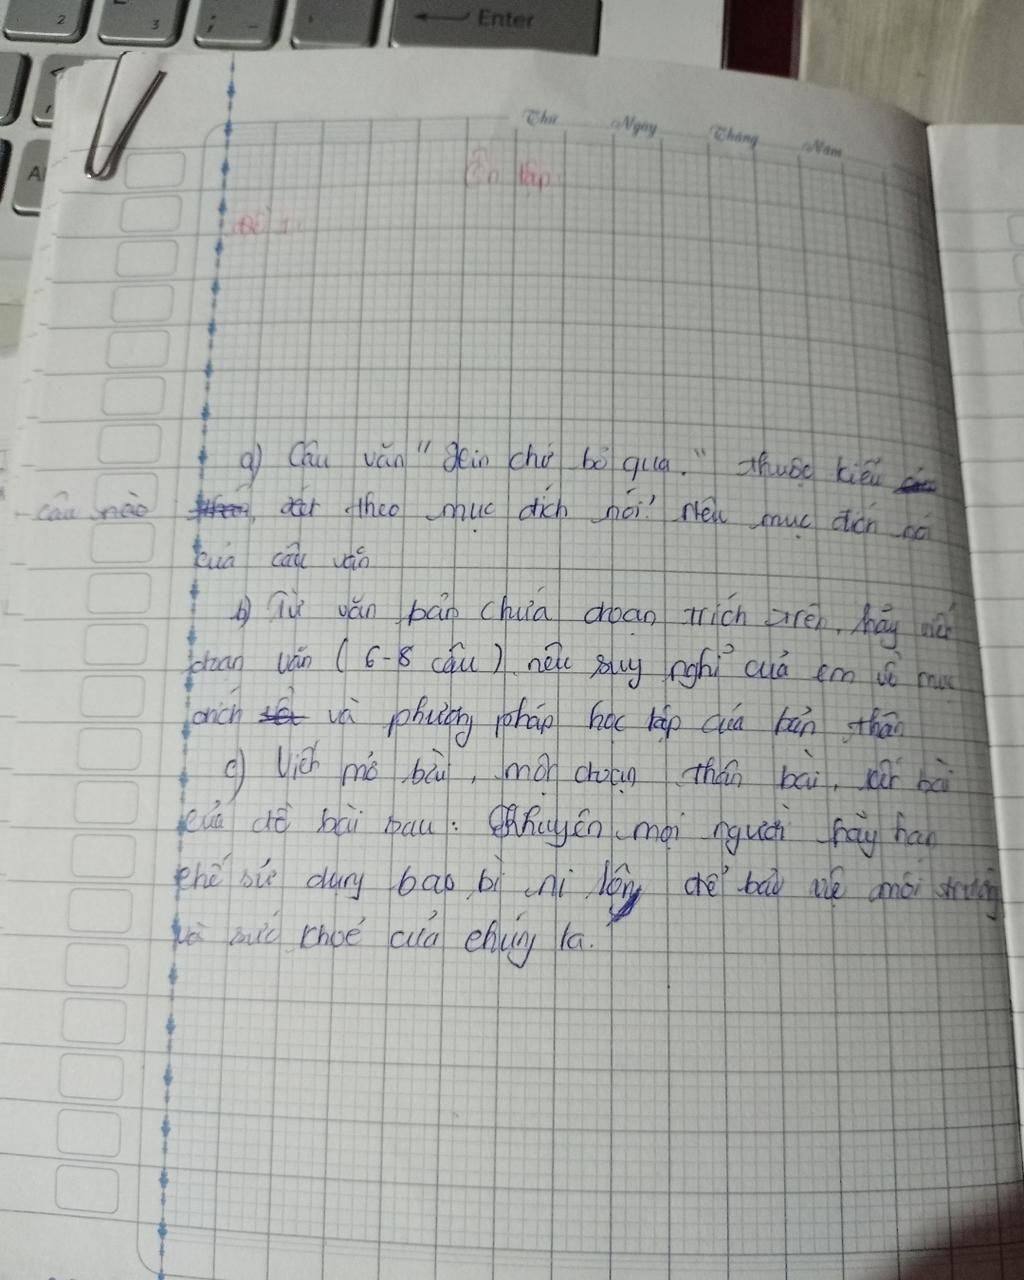 2
3
; -
Enter
Thứ Ngày Tháng Năm
Ôn tập
Đề 1.
a) Câu văn "Xin chớ bỏ qua." thuộc kiểu
câu nào theo mục đích nói? Nêu mục đích nói
của câu văn
b) Từ văn bản chứa đoạn trích trên, hãy viết
đoạn văn (6-8 câu) nêu suy nghĩ của em về mục
đích và phương pháp học tập của bản thân
c) Viết mở bài, một đoạn thân bài, kết bài
của đề bài sau: Khuyên mọi người hãy hạn
chế sử dụng bao bì ni lông để bảo vệ môi trường
và sức khoẻ của chúng ta.